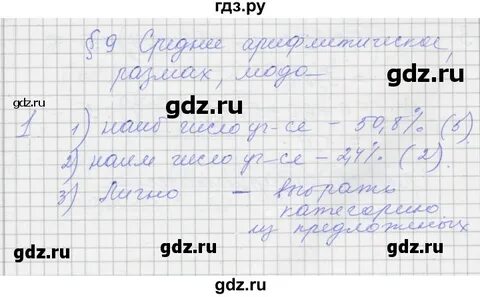 гдз.ру
§ 9 Среднее арифметическое,
размах, мода
gdz.ru gdz.ru
1 1) наиб число уч-ся – 50,8% (5)
gdz.ru gdz.ru
2) наим число уч-ся – 2,4% (2).
3) Лично – выбрать
категорию
gdz.ru gdz.ru
из предложенных
gdz.ru